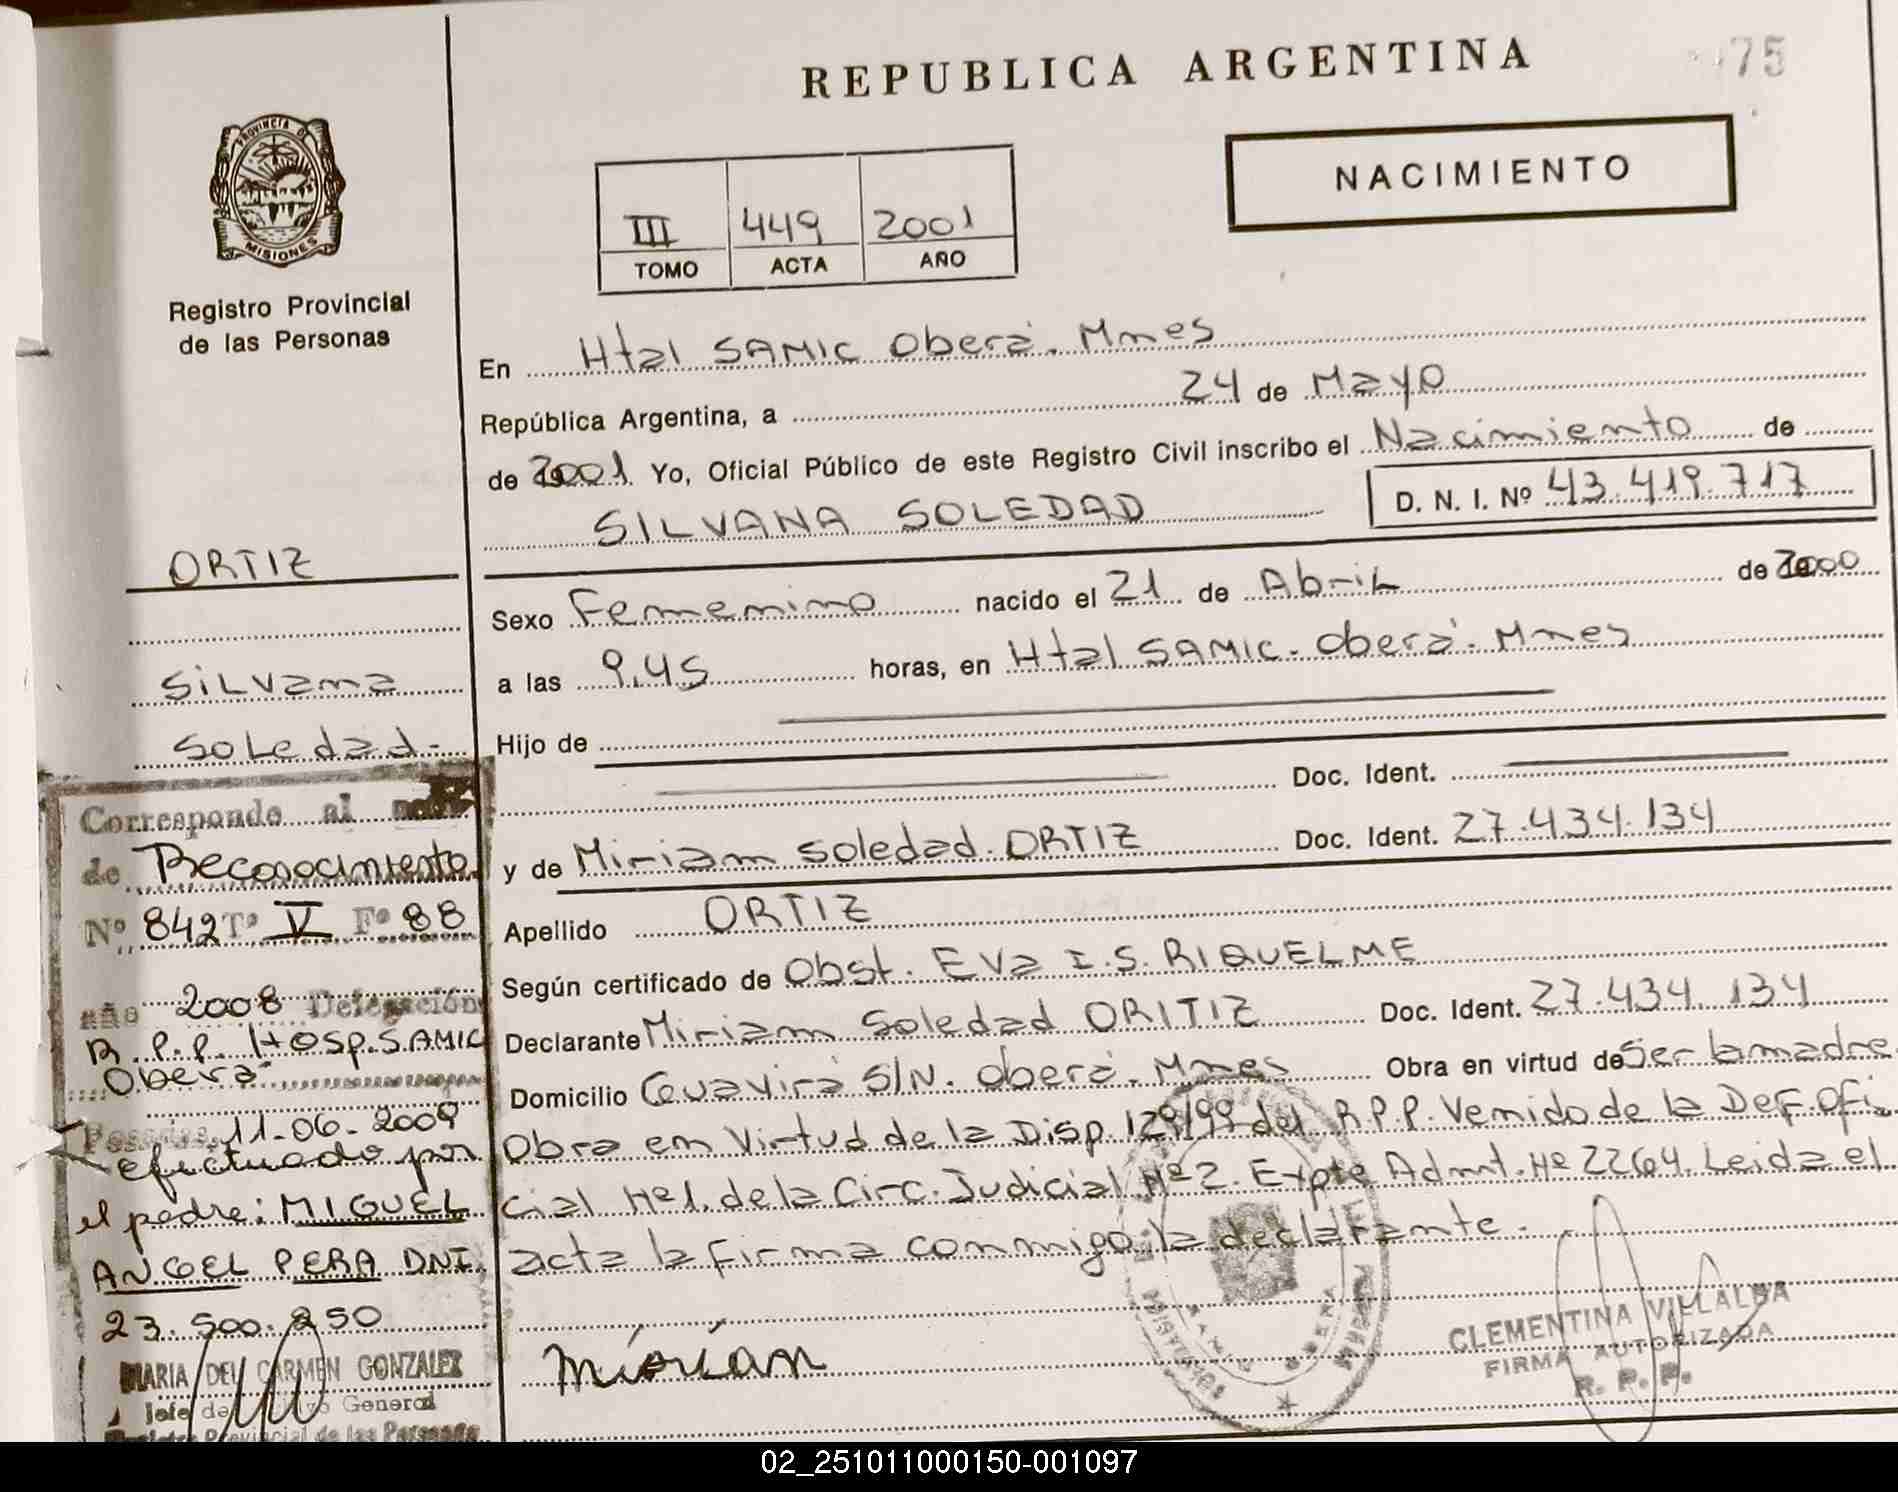 REPUBLICA ARGENTINA
75
PROVINCIA DE
MISIONES
Registro Provincial
de las Personas
NACIMIENTO
III 449 2001
TOMO ACTA AÑO
En Htal SAMIC Oberá. Mnes
República Argentina, a 24 de Mayo
de 2001 Yo, Oficial Público de este Registro Civil inscribo el Nacimiento de
SILVANA SOLEDAD D. N. I. Nº 43.419.717
Sexo Femenino nacido el 21 de Abril de 2000
a las 9,45 horas, en Htal SAMIC. Oberá. Mnes
Hijo de
Doc. Ident.
y de Miriam Soledad ORTIZ Doc. Ident. 27.434.134
Apellido ORTIZ
Según certificado de Obst. EVa I.S. RIQUELME
Declarante Miriam Soledad ORITIZ Doc. Ident. 27.434.134
Domicilio Guavirá S/N. Oberá. Mnes Obra en virtud de Ser la madre
Obra en Virtud de la Disp. 129/99 del R.P.P. Venido de la Def. Ofi
cial Nº1. de la Circ. Judicial Nº2. Expte Admt. Nº 2264. Leida el
acta la firma conmigo la declarante.
Miriam
CLEMENTINA VILLALBA
FIRMA AUTORIZADA
R. P. P.
ORTIZ
SiLVana
Soledad-
Corresponde al
de Reconocimiento
Nº 842 Tº V Fº 88
año 2008 Delegación
R.P.P. Hosp. SAMIC
Oberá
Posadas, 11-06-2009
efectuado por
el padre: MIGUEL
ANGEL PERA DNI
23.500.250
MARIA DEL CARMEN GONZALEZ
Jefe de General
Registro Provincial de las Personas
02_251011000150-001097